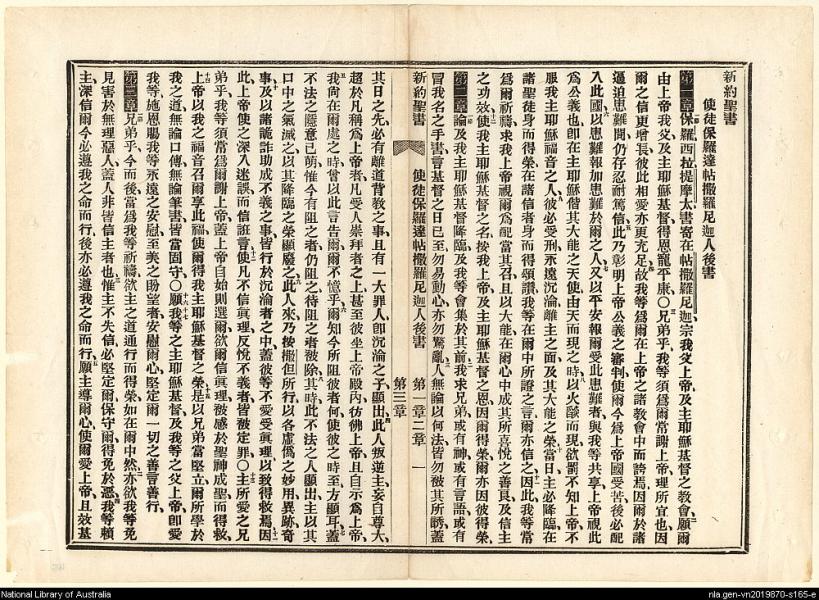 新約聖書
使徒保羅達帖撒羅尼迦人後書
第一章保羅西拉提摩太書寄在帖撒羅尼迦宗我父上帝及主耶穌基督之教會願爾
由上帝我父及主耶穌基督得恩寵平康○兄弟乎我等須爲爾常謝上帝理所宜也因
爾之信更增長彼此相愛亦更充足故我等爲爾在上帝之諸教會中而誇焉因爾於諸
逼迫患難間仍存忍耐篤信此乃彰明上帝公義之審判使爾今爲上帝國受苦後必配
入此國以患難報加患難於爾之人又以平安報爾受此患難者與我等共享上帝視此
爲公義也卽在主耶穌偕其大能之天使由天而現之時以火燄而現欲罰不知上帝不
服我主耶穌福音之人彼必受刑永遠沉淪離主之面及其大能之榮當日主必降臨在
諸聖徒身而得榮在諸信者身而得頌讚我等在爾中所證之言爾亦信之因此我等常
爲爾祈禱求我上帝視爾爲配當其召且以大能在爾心中成其所喜悅之善良及信主
之功效使我主耶穌基督之名按我上帝及主耶穌基督之恩因爾得榮爾亦因彼得榮
第二章論及我主耶穌基督降臨及我等會集於其前我求兄弟或有神或有言語或有
冒我名之手書言基督之日已至勿易動心亦勿驚亂人無論以何法皆勿被其所誘蓋
新約聖書 使徒保羅達帖撒羅尼迦人後書 第一章二章 一
第三章
其日之先必有離道背教之事且有一大罪人卽沉淪之子顯出此人叛逆主妄自尊大
超於凡稱爲上帝者凡受人崇拜者之上甚至彼坐上帝殿內彷彿上帝且自示爲上帝
我尙在爾處之時曾以此言告爾爾不憶乎爾知今所阻彼者何使彼之時至方顯耳蓋
不法之隱意已萌惟今有阻之者仍阻之待阻之者被除其時此不法之人顯出主以其
口中之氣滅之以其降臨之榮顯廢之此人來乃按撒但所行以各虛僞之妙用異跡奇
事及以諸詭詐助成不義之事皆行於沉淪者之中蓋彼等不愛受眞理以致得救焉因
此上帝使之深入迷誤而信誑言使凡不信眞理反悅不義者皆被定罪○主所愛之兄
弟乎我等須當爲爾謝上帝蓋上帝自始則選爾欲爾信眞理被感於聖神成聖而得救
上帝以我之福音召爾享此福使爾得我主耶穌基督之榮是以兄弟當堅立爾所學於
我之道無論口傳無論筆書皆當固守○願我等之主耶穌基督及我等之父上帝卽愛
我等施恩賜我等永遠之安慰至美之盼望者安慰爾心堅定爾一切之善言善行
第三章兄弟乎今而後當爲我等祈禱欲主之道通行而得榮如在爾中然亦欲我等免
見害於無理惡人蓋人非皆信主者也惟主不失信必堅定爾保守爾得免於惡我等賴
主深信爾今必遵我之命而行後亦必遵我之命而行願主導爾心使爾愛上帝且效基
National Library of Australia
nla.gen-vn2019870-s165-e